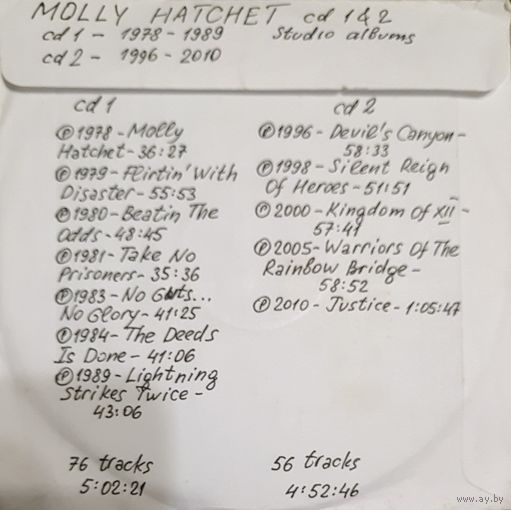 MOLLY HATCHET cd 1 & 2
cd 1 - 1978 - 1989 Studio albums
cd 2 - 1996 - 2010
cd 1
Ⓟ1978 - Molly
Hatchet - 36:27
Ⓟ1979 - Flirtin' With
Disaster - 55:53
Ⓟ1980 - Beatin The
Odds - 48:45
Ⓟ1981 - Take No
Prisoners - 35:36
Ⓟ1983 - No Guts...
No Glory - 41:25
Ⓟ1984 - The Deeds
Is Done - 41:06
Ⓟ1989 - Lightning
Strikes Twice -
43:06
76 tracks
5:02:21
cd 2
Ⓟ1996 - Devil's Canyon -
58:33
Ⓟ1998 - Silent Reign
Of Heroes - 51:51
Ⓟ2000 - Kingdom Of XII -
57:41
Ⓟ2005 - Warriors Of The
Rainbow Bridge -
58:52
Ⓟ2010 - Justice - 1:05:47
56 tracks
4:52:46
www.ay.by